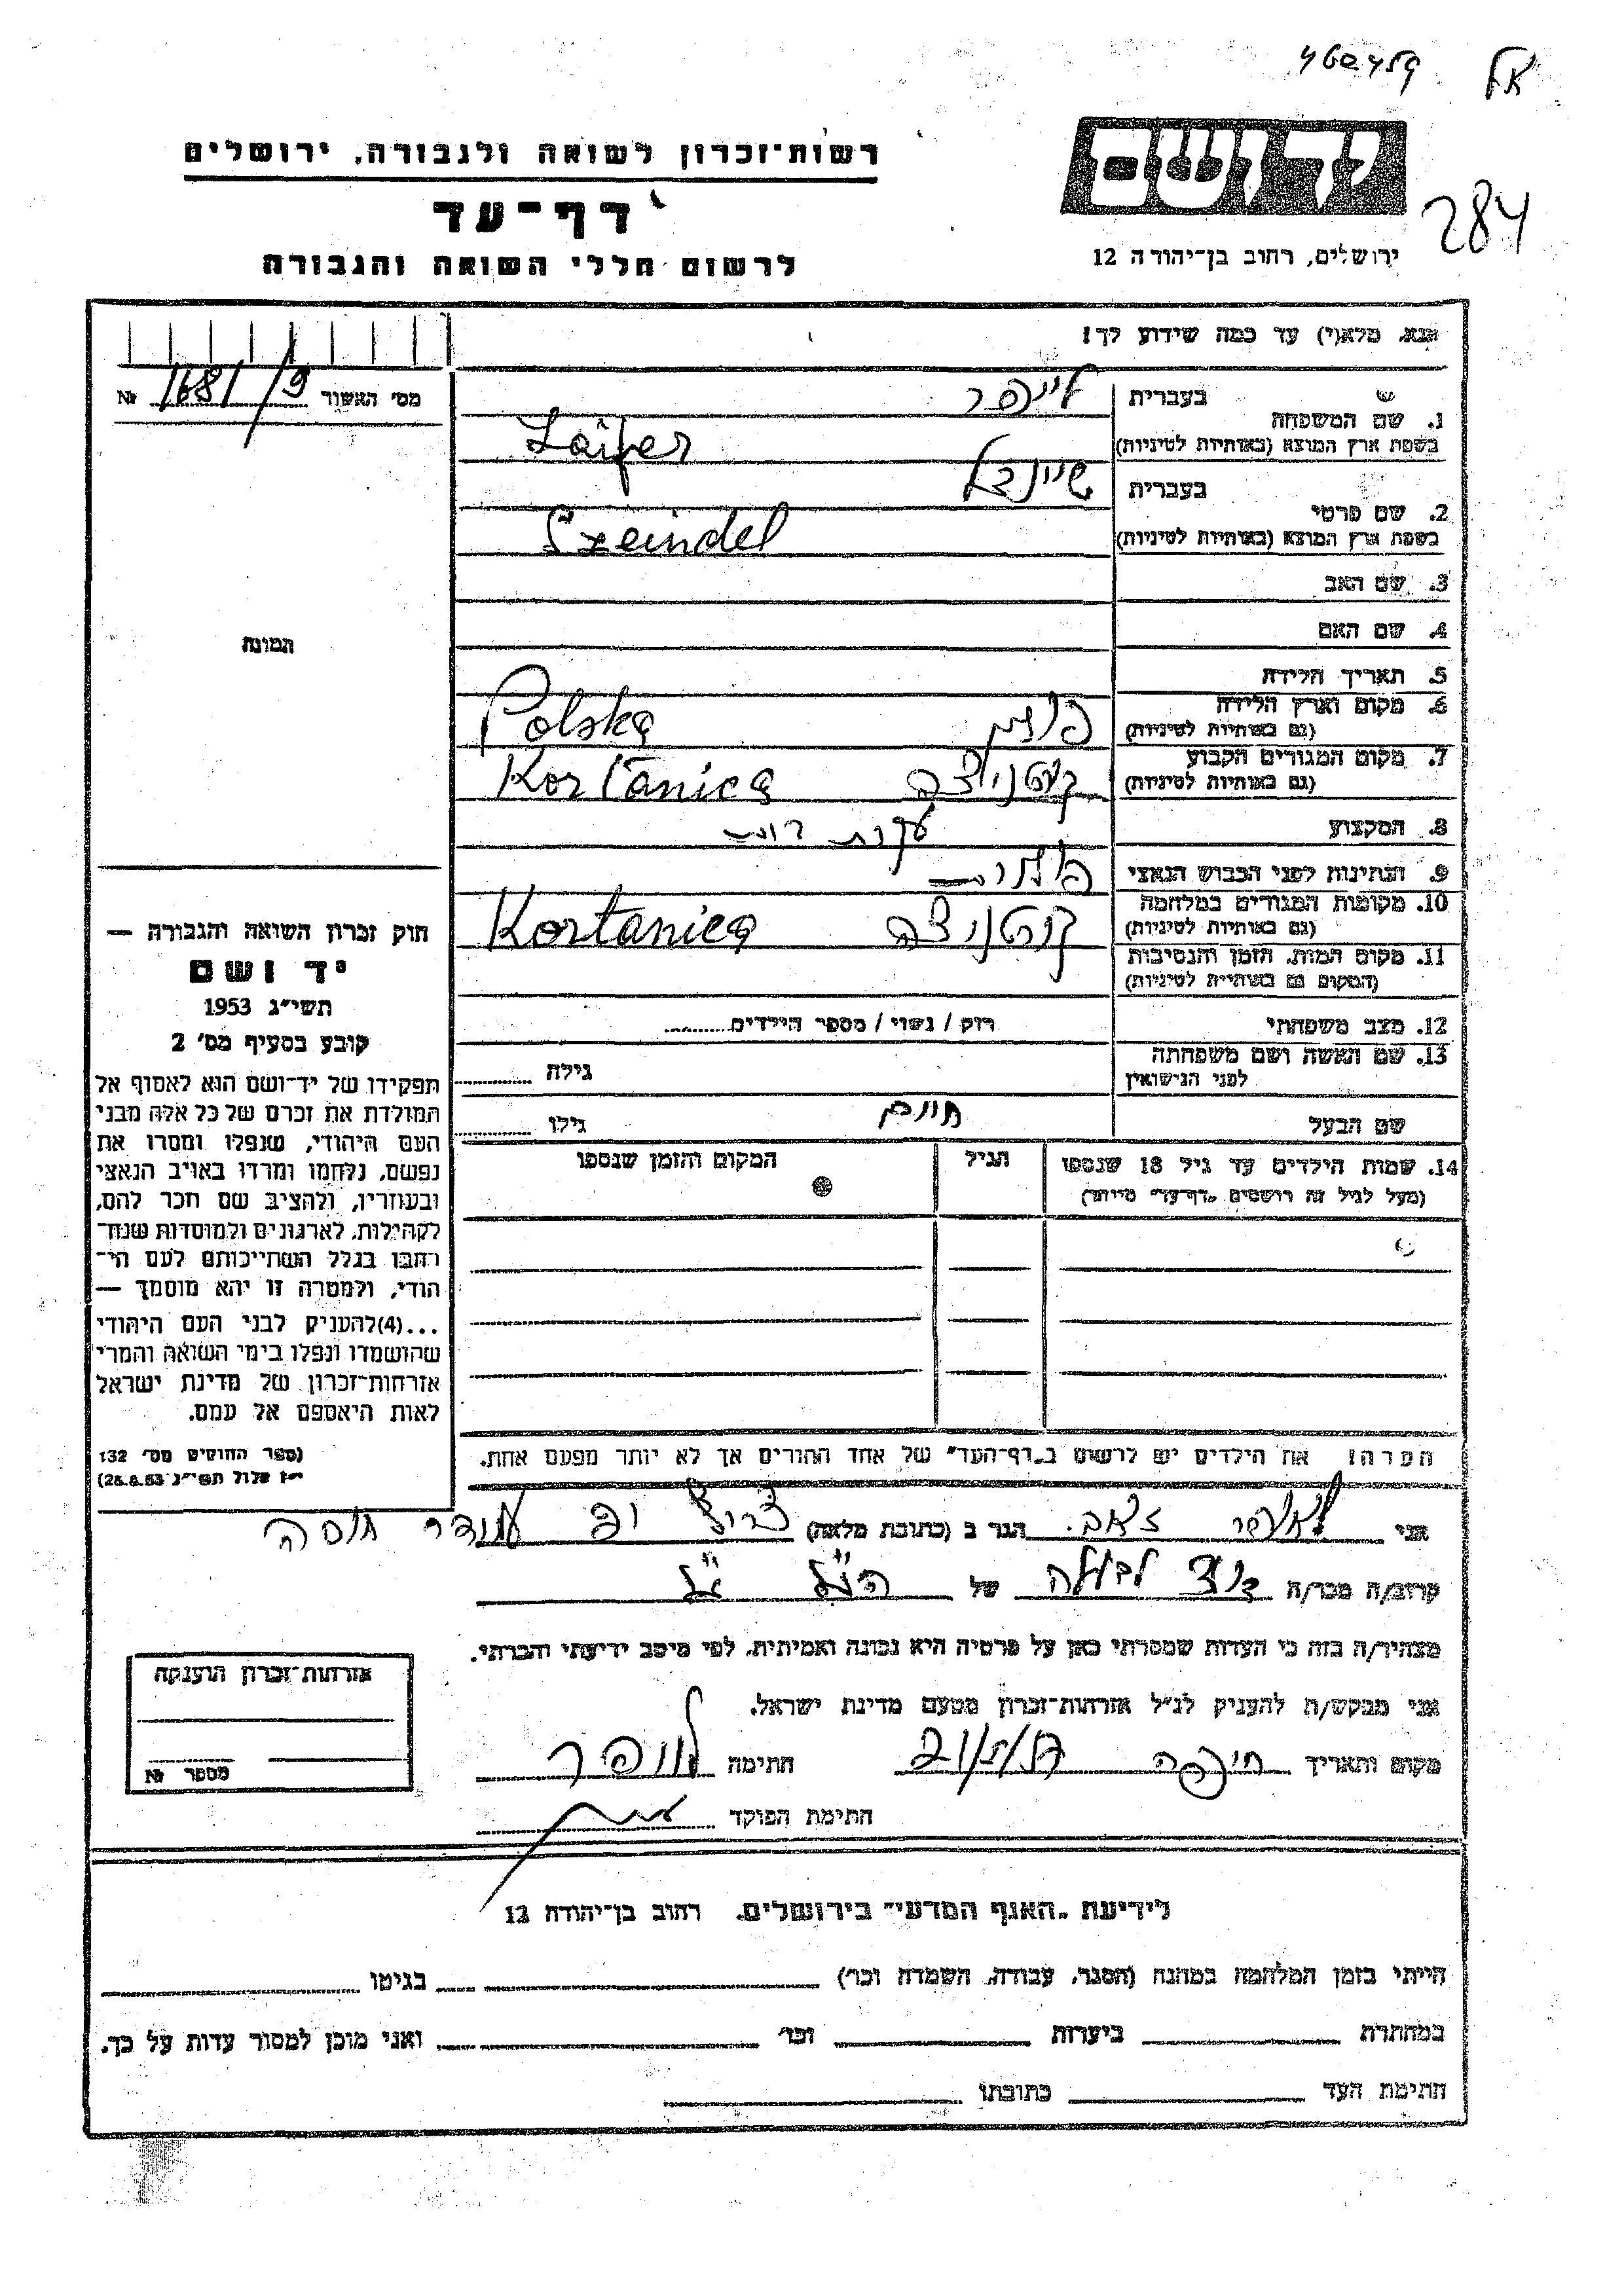 רשות־זכרון לשואה ולגבורה, ירושלים
דף־עד
לרשום חללי השואה והגבורה
ידושם
284
ירושלים, רחוב בן־יהודה 12
נא מלא(י) עד כמה שידוע לך!
מס׳ האשור 1681/9 №
1. שם המשפחה
בעברית לייפר
בשפת ארץ המוצא (באותיות לטיניות) Laifer
2. שם פרטי
בעברית שיינדל
בשפת ארץ המוצא (באותיות לטיניות) Szeindel
3. שם האב
4. שם האם
5. תאריך הלידה
6. מקום וארץ הלידה
(גם באותיות לטיניות) פולין Polska
7. מקום המגורים הקבוע
(גם באותיות לטיניות) קורטניצה Kortanica
8. המקצוע עקרת בית
9. הנתינות לפני הכבוש הנאצי פולנית
10. מקומות המגורים במלחמה
(גם באותיות לטיניות) קורטניצה Kortanica
11. מקום המות, הזמן והנסיבות
(המקום גם באותיות לטיניות)
12. מצב משפחתי רווק / נשוי / מספר הילדים
13. שם האשה ושם משפחתה
לפני הנישואין גילה
שם הבעל חיים גילו
14. שמות הילדים עד גיל 18 שנספו הגיל המקום והזמן שנספו
(מעל לגיל זה רושמים „דף־עד״ מיוחד)
הערה! את הילדים יש לרשום ב„דף־העד״ של אחד ההורים אך לא יותר מפעם אחת.
התמונה
חוק זכרון השואה והגבורה —
יד ושם
תשי״ג 1953
קובע בסעיף מס׳ 2
תפקידו של יד־ושם הוא לאסוף אל
המולדת את זכרם של כל אלה מבני
העם היהודי, שנפלו ומסרו את
נפשם, נלחמו ומרדו באויב הנאצי
ובעוזריו, ולהציב שם וזכר להם,
לקהילות, לארגונים ולמוסדות שנח־
רבו בגלל השתייכותם לעם הי־
הודי, ולמטרה זו יהא מוסמך —
...(4)להעניק לבני העם היהודי
שהושמדו ונפלו בימי השואה והמרי
אזרחות־זכרון של מדינת ישראל
לאות היאספם אל עמם.
(ספר החוקים מס׳ 132
י״ז אלול תשי״ג 28.8.53)
אני לייפר זאב הגר ב (כתובת מלאה)
קרוב/ה מכר/ה של הנ״ל
מצהיר/ה בזה כי העדות שמסרתי כאן על פרטיה היא נכונה ואמיתית, לפי מיטב ידיעתי והכרתי.
אני מבקש/ת להעניק לנ״ל אזרחות־זכרון מטעם מדינת ישראל.
מקום ותאריך חיפה חתימה לייפר
חתימת הפוקד
אזרחות־זכרון הוענקה
מספר №
לידיעת „האגף המדעי״ בירושלים, רחוב בן־יהודה 12
הייתי בזמן המלחמה במחנה (הסגר, עבודה, השמדה וכו׳) בגיטו
במחתרת ביערות וכו׳ ואני מוכן למסור עדות על כך.
חתימת העד כתובתו